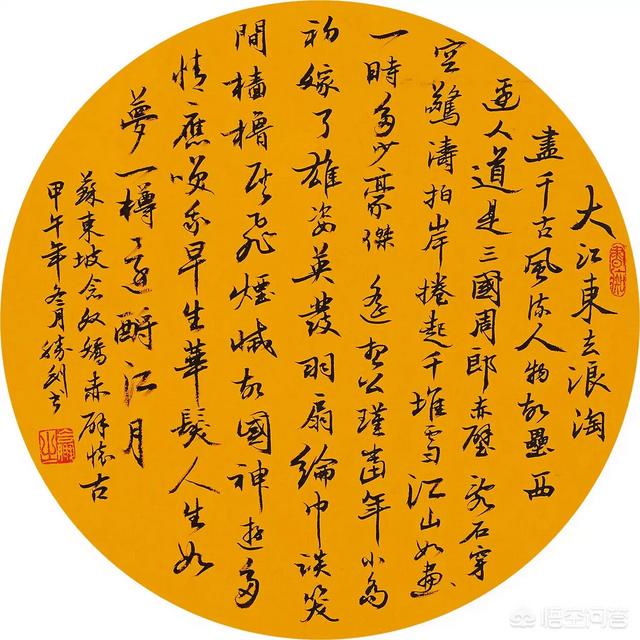 大江東去浪淘
盡千古風流人物故壘西
邊人道是三國周郎赤壁亂石穿
空驚濤拍岸捲起千堆雪江山如畫
一時多少豪傑遙想公瑾當年小喬
初嫁了雄姿英發羽扇綸巾談笑
間檣櫓灰飛煙滅故國神遊多
情應笑我早生華髮人生如
夢一樽還酹江月
蘇東坡念奴嬌赤壁懷古
甲午年冬月勝利書
悟空问答